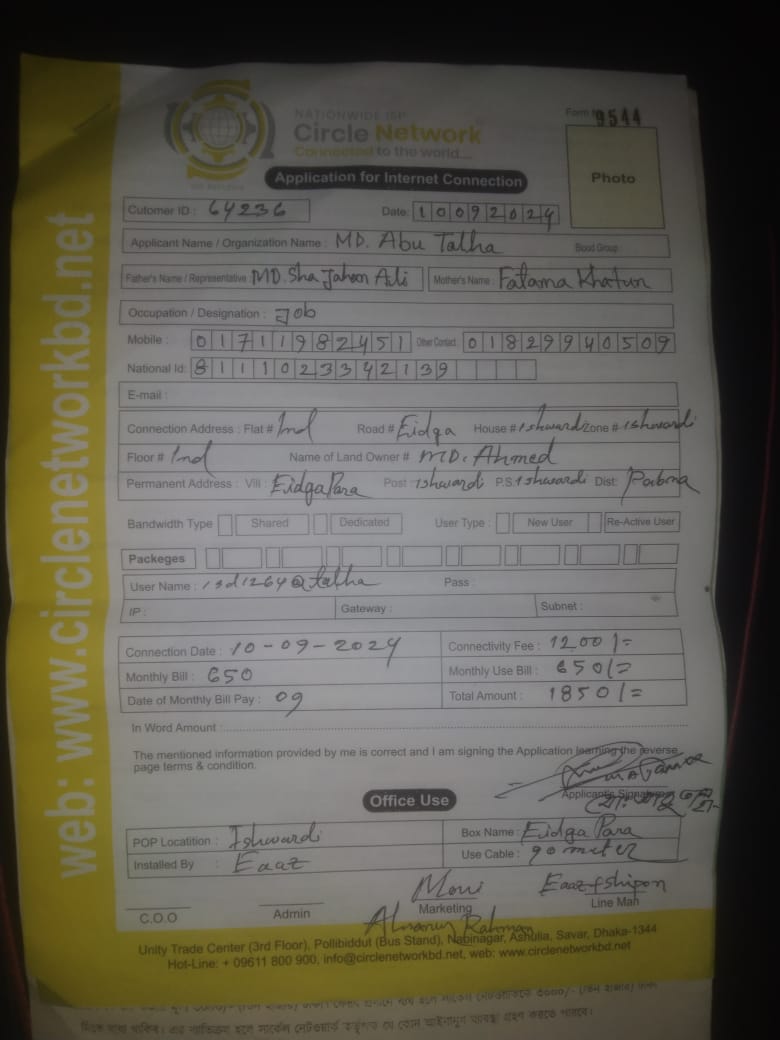 web: www.circlenetworkbd.net
NATIONWIDE ISP
Circle Network
Connected to the world....
Form 9544
Application for Internet Connection
Photo
Cutomer ID : 64236 Date: 10092024
Applicant Name / Organization Name : MD. Abu Talha Blood Group :
Father's Name / Representative : MD. Sha Jahan Ali Mother's Name : Fatama Khatun
Occupation / Designation : Job
Mobile : 01711982451 Other Contact 01829940509
National Id: 8111023342139
E-mail :
Connection Address : Flat # Road # Eidga House # Ishwardi Zone # Ishwardi
Floor # Name of Land Owner # MD. Ahmed
Permanent Address : Vill : EidgaPara Post : Ishwardi P.S: Ishwardi Dist: Pabna
Bandwidth Type Shared Dedicated User Type : New User Re-Active User
Packeges
User Name : isd1264@talha Pass :
IP : Gateway : Subnet :
Connection Date : 10-09-2024 Connectivity Fee : 1200/=
Monthly Bill : 650 Monthly Use Bill : 650/=
Date of Monthly Bill Pay : 09 Total Amount : 1850/=
In Word Amount :
The mentioned information provided by me is correct and I am signing the Application learning the reverse
page terms & condition.
Applicant's Signature
Office Use
POP Locatition : Ishwardi Box Name : Eidga Para
Installed By : Eaaz Use Cable : 90 miter
Eaaz + Shipon
C.O.O Admin Marketing Line Man
Rahman
Unity Trade Center (3rd Floor), Pollibiddut (Bus Stand), Nabinagar, Ashulia, Savar, Dhaka-1344
Hot-Line: + 09611 800 900, info@circlenetworkbd.net, web: www.circlenetworkbd.net